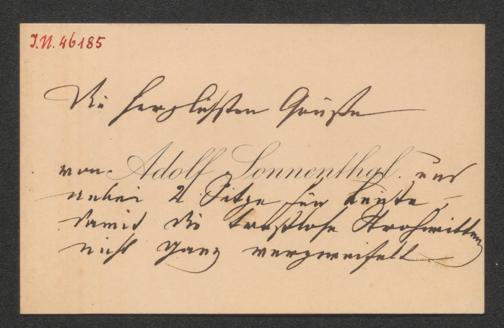 I.N. 46185
Die herzlichsten Grüße
von Adolf Sonnenthal. und
anbei 2 Sitze für heute –
damit die trostlose Strohwitten
nicht ganz verzweifelt –